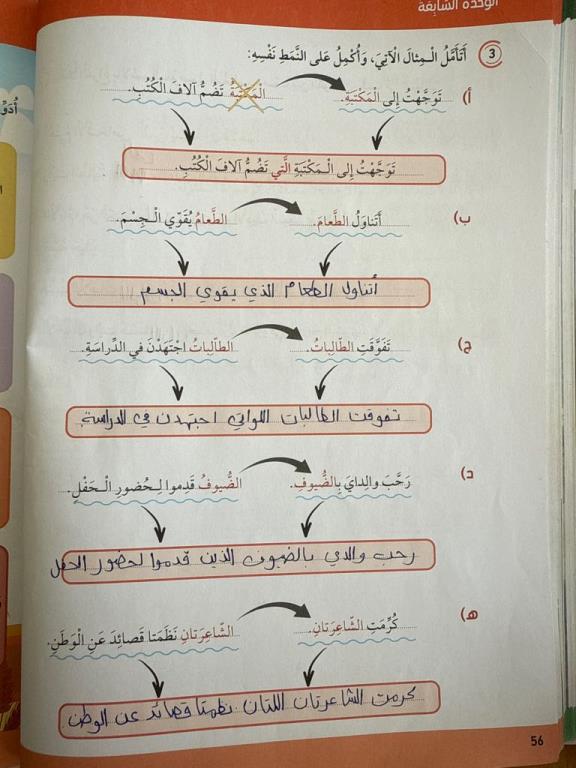 الوحدة السابعة
3 أَتَأَمَّلُ الْـمِثالَ الْآتِيَ، وَأُكْمِلُ عَلى النَّمَطِ نَفْسِهِ:
أ) تَوَجَّهْتُ إِلى الْمَكْتَبَةِ. الْمَكْتَبَةُ تَضُمُّ آلافَ الْكُتُبِ.
تَوَجَّهْتُ إِلى الْـمَكْتَبَةِ الَّتي تَضُمُّ آلافَ الْكُتُبِ.
ب) أَتَناوَلُ الطَّعامَ. الطَّعامُ يُقَوّي الْـجِسْمَ.
أتناول الطعام الذي يقوي الجسم
ج) تَفَوَّقَتِ الطّالِباتُ. الطّالِباتُ اجْتَهَدْنَ في الدِّراسَةِ.
تفوقت الطالبات اللواتي اجتهدن في الدراسة.
د) رَحَّبَ والِدايَ بِالضُّيوفِ. الضُّيوفُ قَدِموا لِـحُضورِ الْـحَفْلِ.
رحب والدي بالضيوف الذين قدموا لحضور الحفل
ه) كُرِّمَتِ الشّاعِرَتانِ. الشّاعِرَتانِ نَظَمَتا قَصائِدَ عَنِ الْوَطَنِ.
كرمت الشاعرتان اللتان نظمتا قصائد عن الوطن
56